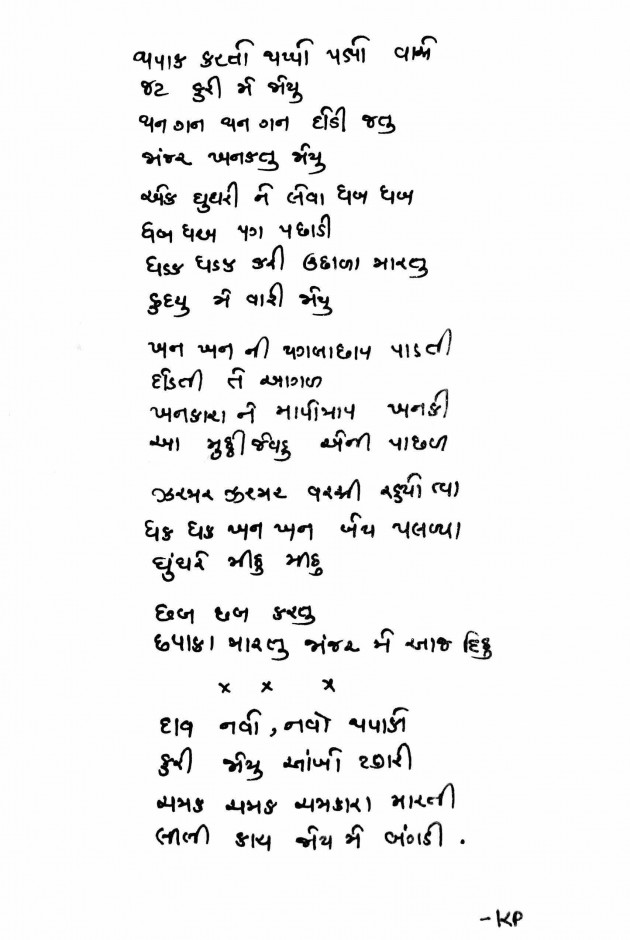 થપાક કરતી થપ્પી પડી વાગે
જટ ફુરી મે જોયુ
થન ગન થન ગન દોડી જતુ
ઝાંજર ખનકતુ જોયુ
એક ઘુઘરી ને લેવા ધબ ધબ
ધબ ધબ પગ પછાડી
ધડક ધડક કરી ઉછાળા મારતુ
કુદયુ મે વારી જોયુ
ખન ખન ની પગલાછાપ પાડતી
દોડતી તે આગળ
ખનકારા ને માપોમાપ ખનકી
આ મુઠ્ઠી જેવડુ એની પાછળ
ઝરમર ઝરમર વરસી રહ્યો ત્યા
ધક ધક ખન ખન બેય પલળ્યા
ઘુંઘરુ મીઠુ મીઠુ
છબ છબ કરતુ
છપાકા મારતુ ઝાંજર મે આજ દિઠુ
x x x
દાવ નવો , નવો થપાકો
ફુરી જોયુ આંખો ઠારી
ચમક ચમક ચમકારા મારતી
લીલી કાચ જોય મે બંગડી .
-KP